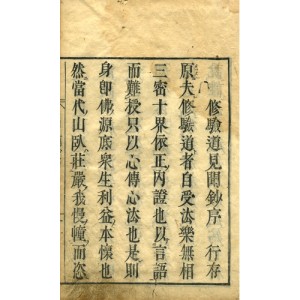 修驗道見聞鈔序　行存
原夫修驗道者自受法樂無相
三密十界依正內證也以言語
而難授只以心傳心法也是則
身即佛源底衆生利益本懷也
然當代山臥莊嚴我慢幢而恣